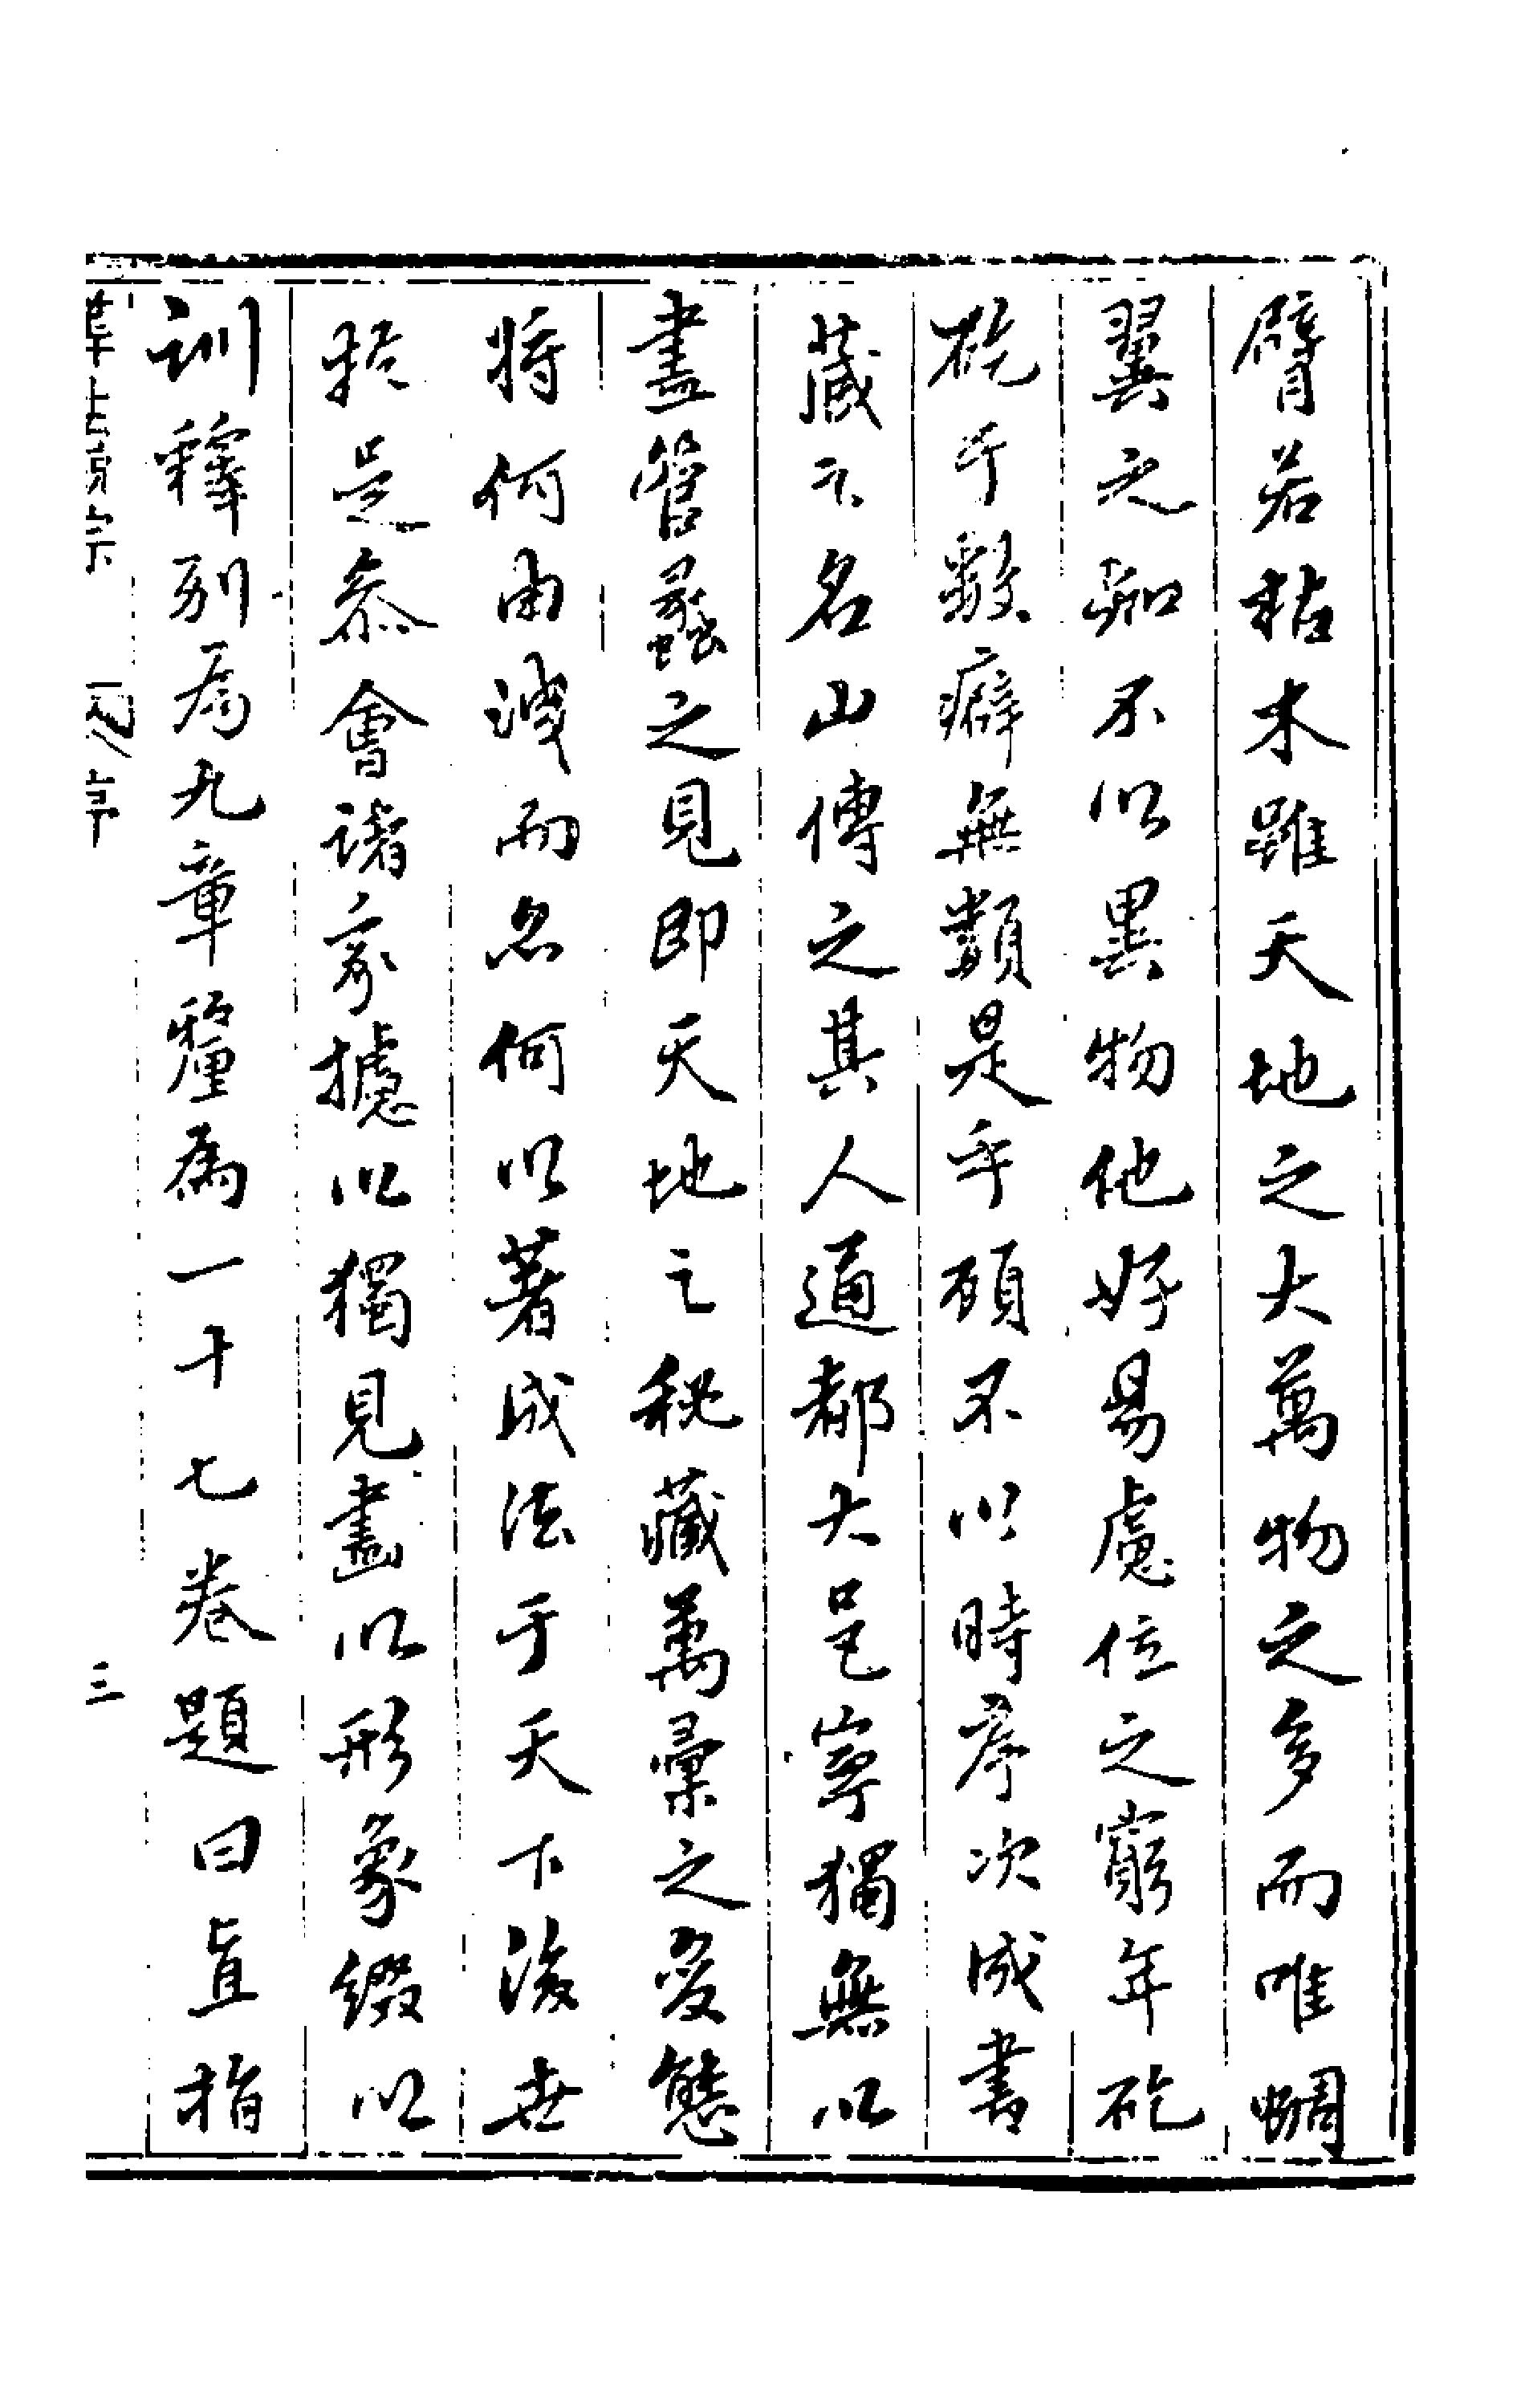 臂若枯木雖天地之大萬物之多而唯蜩
翼之知不以異物他好易慮位之窮年矻
矻于數癖無類是乎顧不以時序次成書
藏之名山傳之其人通都大邑寧獨無以
盡管蠡之見即天地之秘藏萬彙之變態
將何由洩而名何以著成法于天下後世
於是叅會諸家攄以獨見畫以形象綴以
訓釋別為九章釐為一十七卷題曰直指
算法統宗
序
三